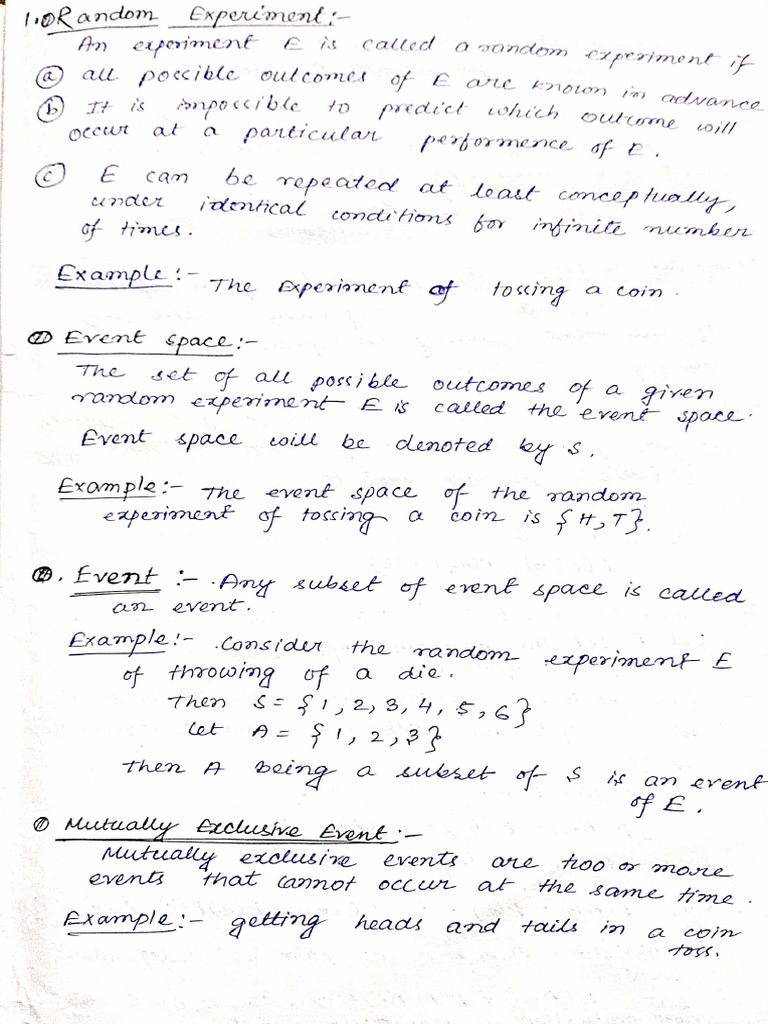 1. ① Random Experiment:-
An experiment E is called a random experiment if
ⓐ all possible outcomes of E are known in advance
ⓑ It is impossible to predict which outcome will
occur at a particular performence of E.
ⓒ E can be repeated at least conceptually,
under identical conditions for infinite number
of times.
Example:- The Experiment of tossing a coin.
Event space:-
The set of all possible outcomes of a given
random experiment E is called the event space.
Event space will be denoted by S.
Example:- The event space of the random
experiment of tossing a coin is {H,T}.
Event :- Any subset of event space is called
an event.
Example:- Consider the random experiment E
of throwing of a die.
Then S = {1, 2, 3, 4, 5, 6}
Let A = {1, 2, 3}
Then A being a subset of S is an event
of E.
Mutually Exclusive Event:-
Mutually exclusive events are two or more
events that cannot occur at the same time.
Example:- getting heads and tails in a coin
toss.